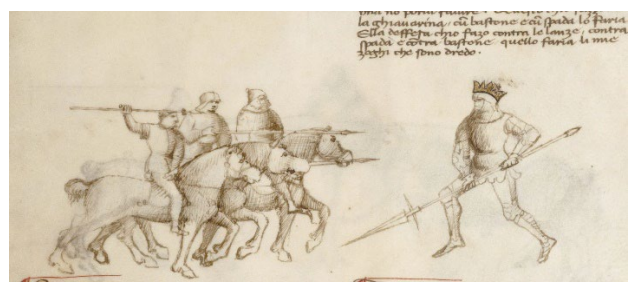 la ghiavarina, cū bastone e cū spada lo faria
Ella deffesa chio fazo contra le lanze, contra
spada e cōtra bastone quello faria li mie
zoghi che sono dredo.